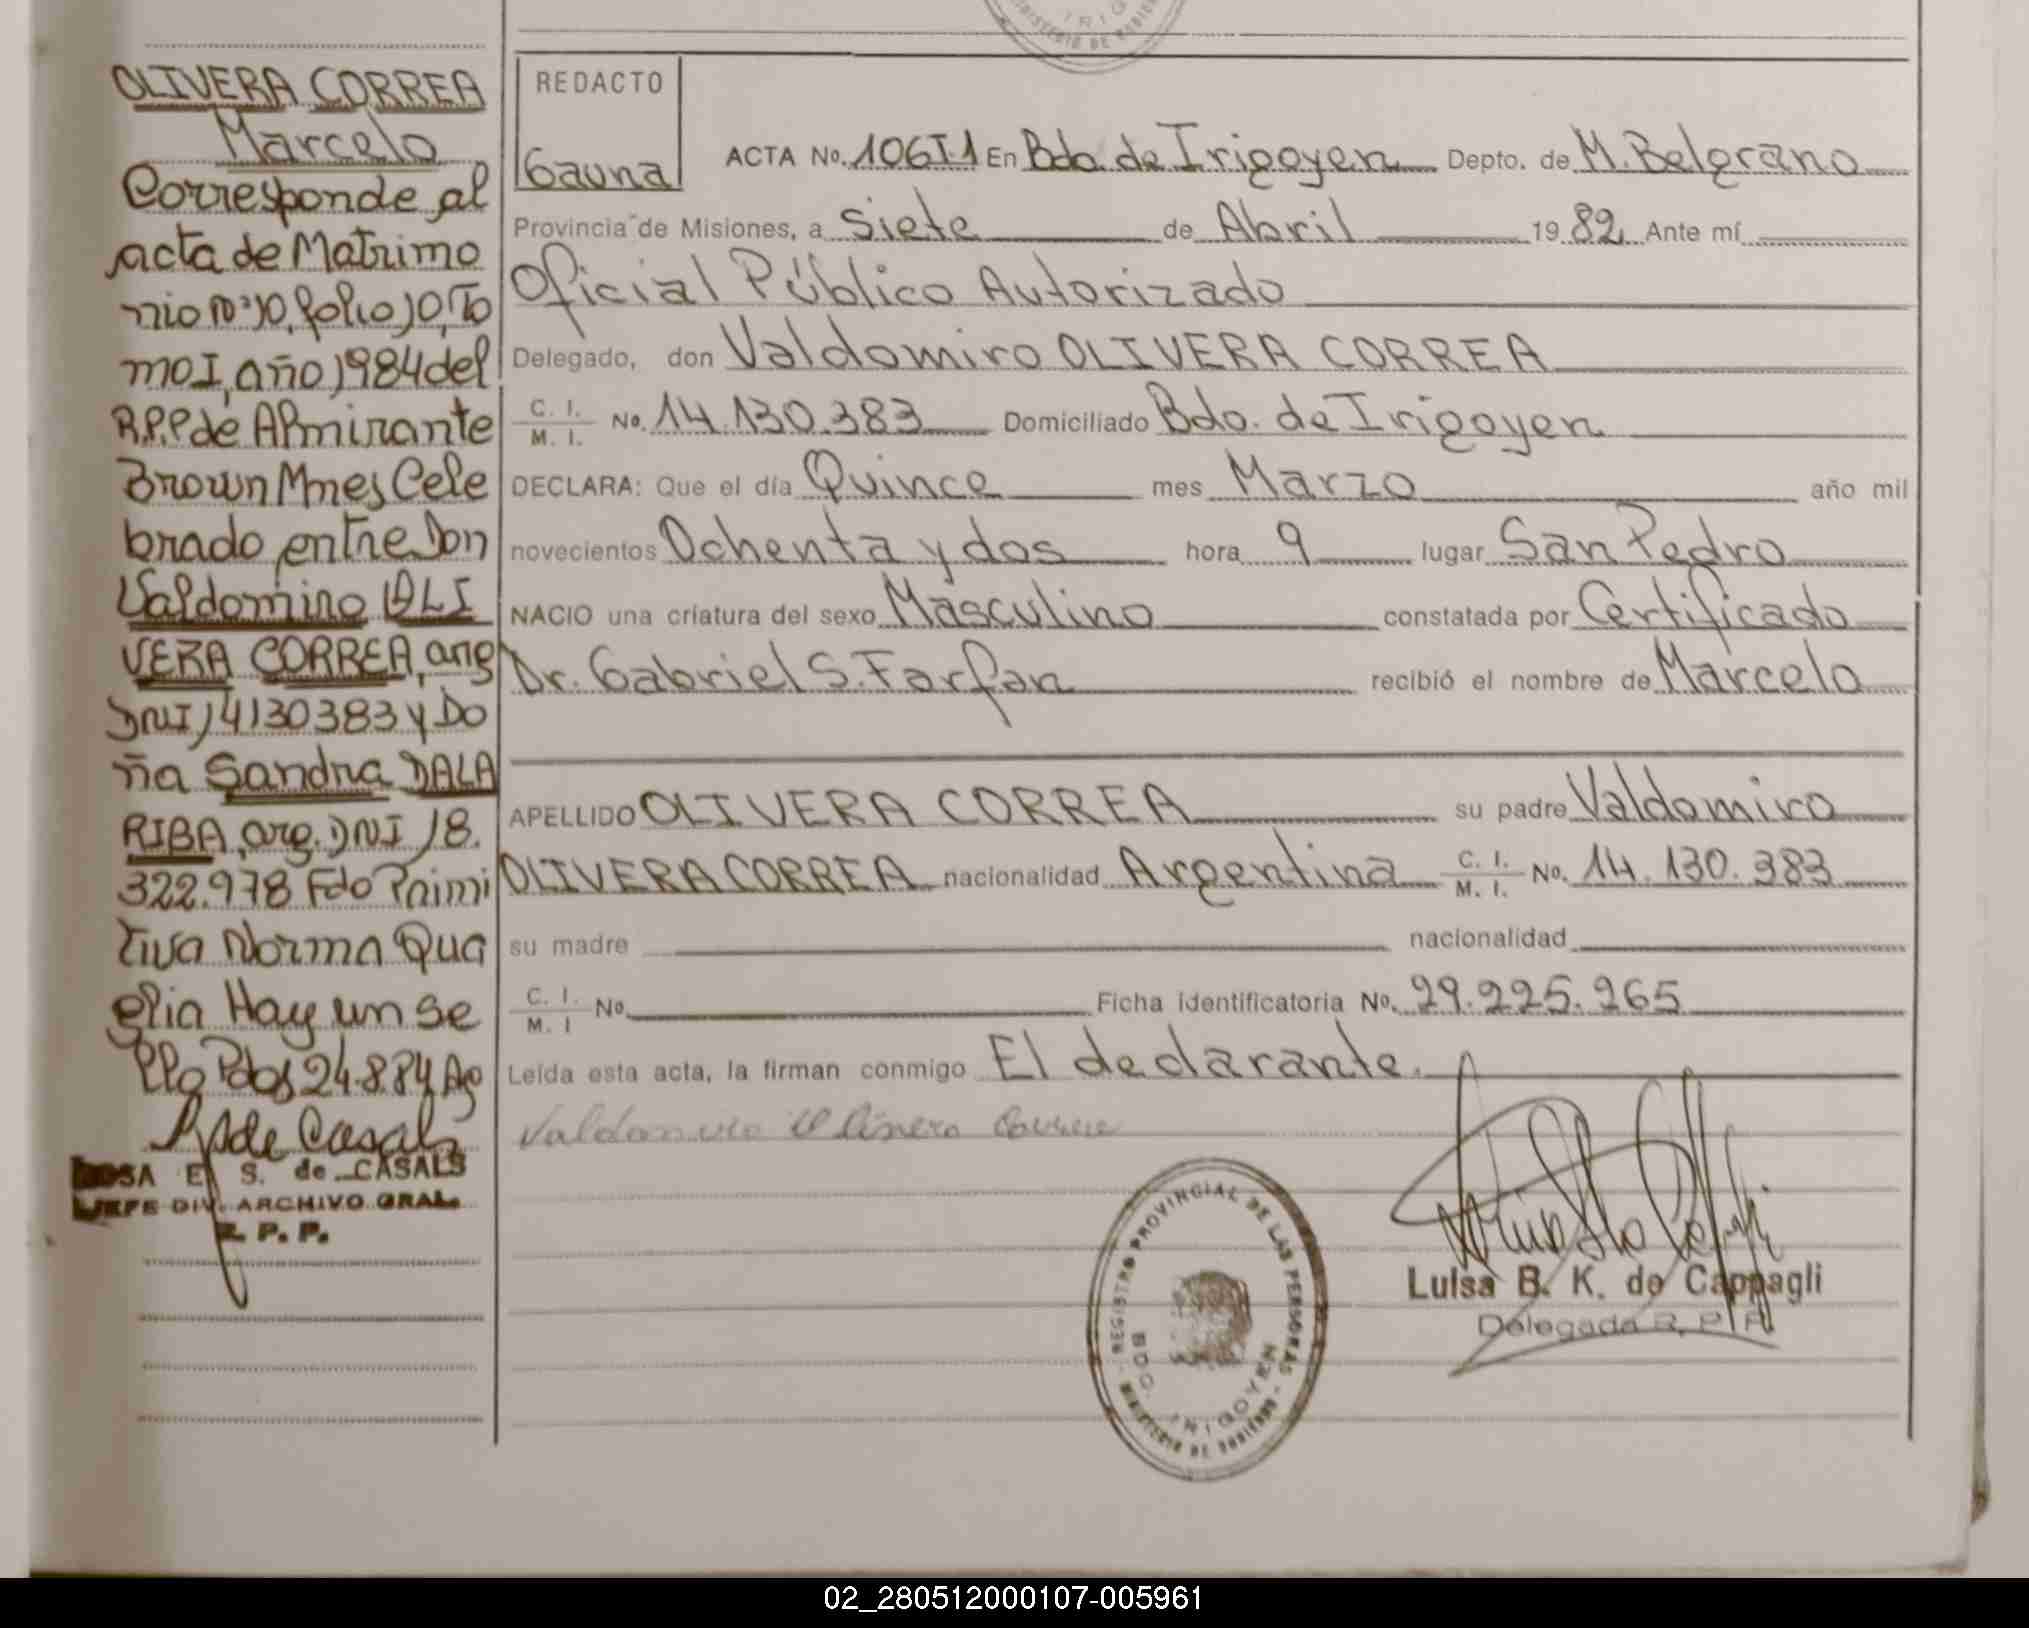 OLIVERA CORREA
Marcelo
Corresponde al
acta de Matrimo
nio Nº 10, folio 10, To
mo I, año 1984 del
R.P.P de Almirante
Brown Mnes Cele
brado entre Don
Valdomiro OLI
VERA CORREA, arg
DNI 14130383 y Do
ña Sandra DALA
RIBA, arg. DNI 18.
322.978 Fdo Primi
tiva Norma Qua
glia Hay un Se
llo Pdas 24.8.84
de Casals
ROSA E. S. de CASALS
JEFE DIV. ARCHIVO GRAL.
R. P. P.
REDACTO
Gauna
ACTA No. 106T1 En Bdo. de Irigoyen Depto. de M. Belgrano
Provincia de Misiones, a Siete de Abril 1982 Ante mí
Oficial Público Autorizado
Delegado, don Valdomiro OLIVERA CORREA
C. I. / M. I. No. 14.130.383 Domiciliado Bdo. de Irigoyen
DECLARA: Que el día Quince mes Marzo año mil
novecientos Ochenta y dos hora 9 lugar San Pedro
NACIO una criatura del sexo Masculino constatada por Certificado
Dr. Gabriel S. Farfan recibió el nombre de Marcelo
APELLIDO OLIVERA CORREA su padre Valdomiro
OLIVERA CORREA nacionalidad Argentina C. I. / M. I. No. 14.130.383
su madre nacionalidad
C. I. / M. I No. Ficha identificatoria No. 29.225.265
Leída esta acta, la firman conmigo El declarante.
Valdomiro Olivera Correa
REGISTRO PROVINCIAL DE LAS PERSONAS
BDO. IRIGOYEN
MINISTERIO DE GOBIERNO
Luisa B. K. de Cappagli
Delegada R. P. P.
02_280512000107-005961